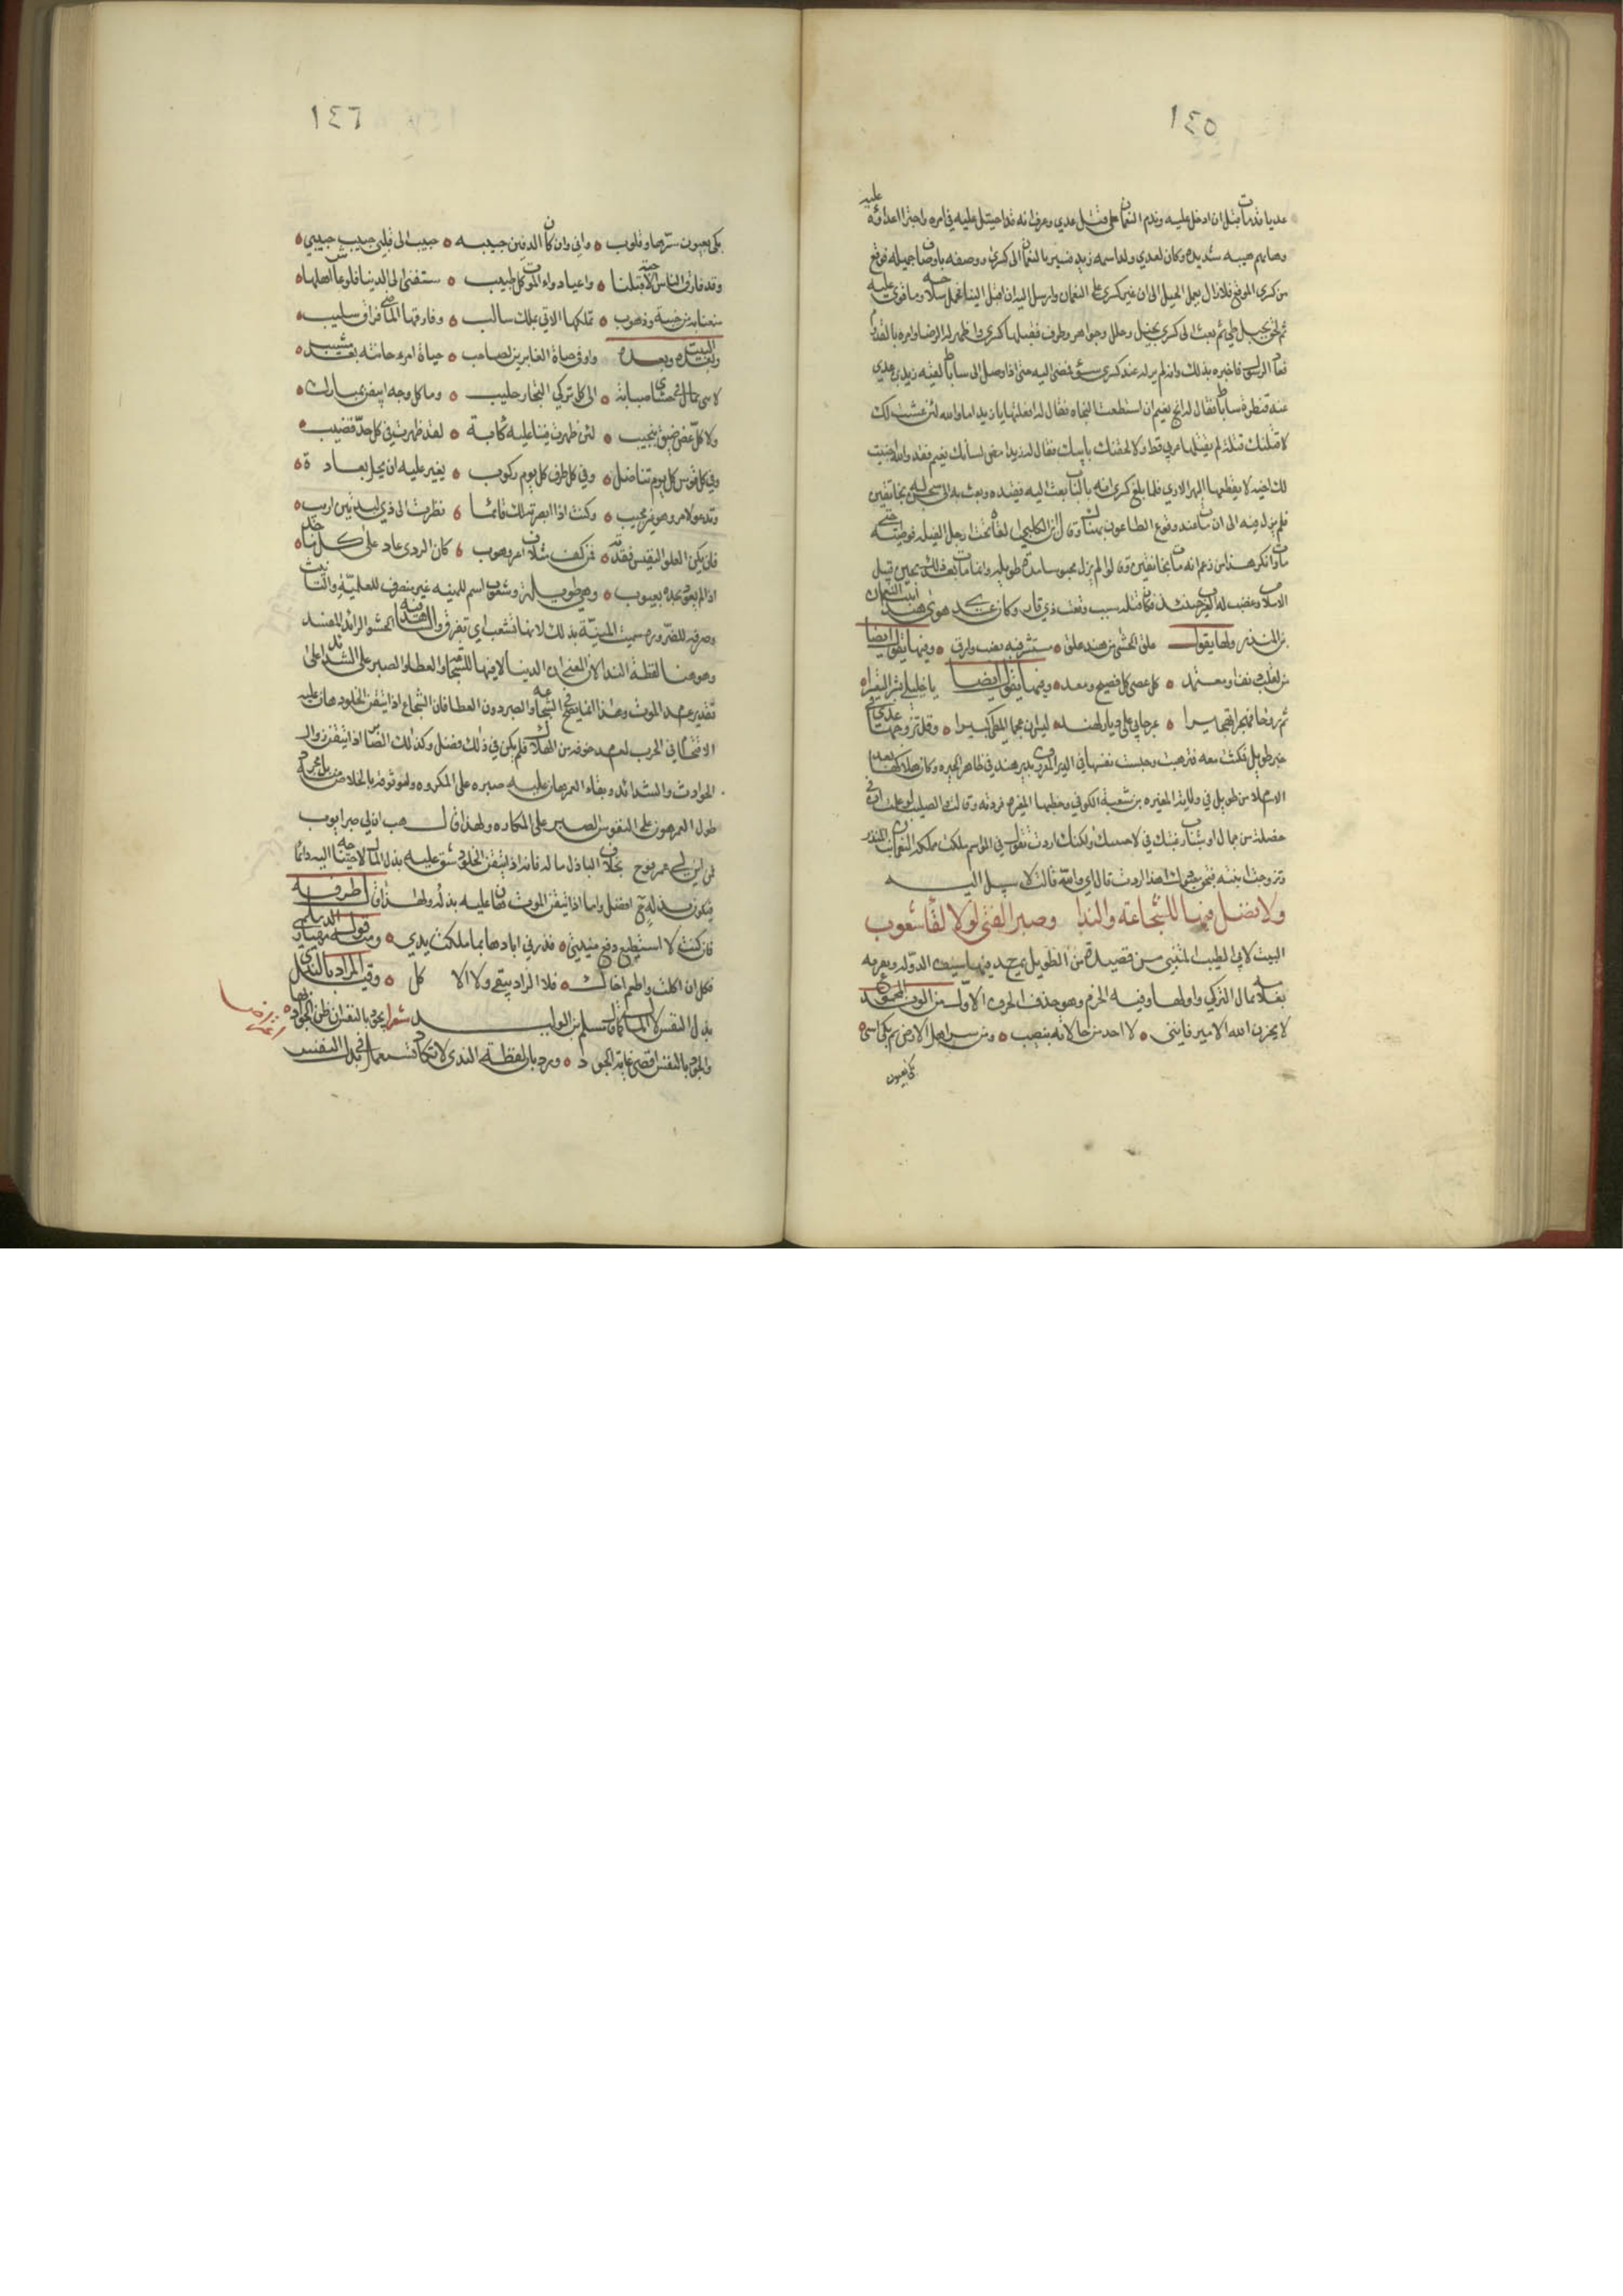 ١٤٥
عديا قد مات قبل ان ادخل عليه وندم النعمان على قتل عدي وعرف انه قد احتيل عليه في امره واجترا اعداؤه عليه
وهابهم هيبه شديده وكان لعدي ولد اسمه زيد فسير بالنعمان الى كسرى ووصفه باوصاف جميله فوقع
من كسرى الموقع فلا زال يعمل الحيل الى ان غير كسرى على النعمان وارسل اليه ان اقبل الينا فحمل سلاحه وما قوي عليه
ثم لحق بجبل طي ثم بعث الى كسرى بخيل وحلل وجواهر وطرف فقبلها كسرى واظهر له الرضا وامره بالقدوم
فعاد الرسول فاخبره بذلك وانه لم ير له عند كسرى سوء فمضى اليه حتى اذا وصل الى ساباط لقيه زيد بن عدي
عند قنطرة ساباط فقال له انج نعيم ان استطعت النجاه فقال له افعلتها يا زيد اما والله لئن عشت لك
لاقتلنك قتلة لم يقتلها عربي قط ولالحقنك بابيك فقال له زيد امض لشانك نعيم فقد والله اخيت
لك اخيه لا يقطعها المهر الارن فلما بلغ كسرى انه بالباب بعث اليه فقيده وبعث به الى سجن له بخانقين
فلم يزل فيه الى ان مات عند وقوع الطاعون هناك وقال ابن الكلبي القاه تحت رجل الفيله فوطئته حتى
مات وانكر هذا من زعم انه مات بخانقين وقالوا لم يزل محبوسا مدة طويله وانما مات بعد ذلك بحين قبيل
الاسلام وغضب له العرب حينئذ فكان قتله سبب وقعت ذي قار وكان عدي هوى هند ابنت النعمان
بن المنذر ولها يقول علق الاحشا من هند علق ٥ مستسر فيه نصب وارق ٥ وفيها يقول ايضا
من لقلب دنف او معتمد ٥ كل عصى كل نصيح ومعد ٥ وفيها يقول ايضا يا خليلي يسرا التعسيرا
ثم روحا فهجرا تهجيرا ٥ عرجا بي على ديار لهند ٥ ليس ان عجتما المطي كبيرا ٥ وقد تزوجها عدي في
خبر طويل فمكثت معه فترهبت وحبست نفسها في الدير المعروف بدير هند في ظاهر الحيره وكان هلاكها بعد
الاسلام بزمن طويل في ولاية المغيره بن شعبة الكوفي وخطبها المغيره فردته وقالت والصليب لو علمت ان في
خصلة من جمال او شباب رغبتك في لاجبتك ولكنك اردت تقول في المواسم ملكت مملكة النعمان بن المنذر
وتزوجت ابنته فبحق معبودك اهذا اردت قال اي والله قالت لا سبيل اليه
ولا فضل فيها للشجاعة والندا وصبر الفتى لولا لقاء شعوب
البيت لابي الطيب المتنبي من قصيدة من الطويل يمدح فيها سيف الدوله ويعزيه
بغلامه يماك التركي واولها وفيه الخرم وهو حذف الحرف الاول من الوتد المجموع
لا يحزن الله الامير فانني ٥ لاخذ من حالاته بنصيب ٥ ومن سر اهل الارض ثم بكى اسى ٥
بكى بعيون
١٤٦
بكى بعيون سرها وقلوب ٥ واني وان كان الدفين حبيبه ٥ حبيب الى قلبي حبيب حبيبي ٥
وقد فارق الناس الاحبة قبلنا ٥ واعيا دواء الموت كل طبيب ٥ سبقنا الى الدنيا فلو عاش اهلها ٥
منعنا بها من جيئة وذهوب ٥ تملكها الاتي تملك سالب ٥ وفارقها الماضي فراق سليب ٥
وبعده البيت وبعده واوفى حياة الغابرين لصاحب ٥ حياة امرء خانته بعد مشيب ٥
لابقى يماك في حشاي صبابة ٥ الى كل تركي النجار جليب ٥ وما كل وجه ابيض بمبارك ٥
ولا كل جفن ضيق بنجيب ٥ لئن ظهرت فينا عليه كآبة ٥ لقد ظهرت في كل حد قضيب ٥
وفي كل قوس كل يوم تناضل ٥ وفي كل طرف كل يوم ركوب ٥ يعز عليه ان يخل بعادة ٥
وتدعو لامر وهو غير مجيب ٥ وكنت اذا ابصرته لك قائما ٥ نظرت الى ذي لبدتين اديب ٥
فان يكن العلق النفيس فقدته ٥ فمن كف متلاف اغر وهوب ٥ كان الردى عاد على كل ماجد ٥
اذا لم يعوذ مجده بعيوب ٥ وهي طويلة وشعوب اسم للمنيه غير منصرف للعلمية والتانيث
وصرفه للضرورة سميت المنية بذلك لانها تشعب اي تفرق والشاهد فيه الحشو الزائد المفسد
وهو هنا لفظة الندا لان المعنى ان الدنيا لا فضل فيها للشجاعة والعطا والصبر على الشدائد على
تقدير عدم الموت وهذا انما يصح في الشجاعة والصبر دون العطا فان الشجاع اذا تيقن الخلود هان عليه
الاقتحام في الحرب لعدم خوفه من الهلاك فلم يكن في ذلك فضل وكذلك الصابر اذا تيقن زوال
الحوادث والشدائد وبقاء العمر هان عليه صبره على المكروه ولو ثوقه بالخلاص منه بل مجرد
طول العمر يهون على النفوس الصبر على المكاره ولهذا قال هب ان لي صبر ايوب
فمن اين لي عمر نوح بخلاف الباذل ماله فانه اذا تيقن الخلود شق عليه بذل المال لاحتياجه اليه دائما
فيكون بذله ح افضل واما اذا تيقن الموت فقد هان عليه بذله ولهذا قال طرفه
فان كنت لا اسطيع دفع منيتي ٥ فذرني ابادرها بما ملكت يدي ٥ ومثله قول مهيار الديلمي
فكل ان اكلت واطعم اخاك ٥ فلا الزاد يبقى ولا الاكل ٥ وقيل المراد بالندى
بذل النفس لا المال كما قال مسلم بن الوليد شعرا يجود بالنفس ان ظن الجواد بها ٥
والجود بالنفس اقصى غاية الجود ٥ ورد بان لفظة الندى لا تكاد تستعمل في بذل النفس